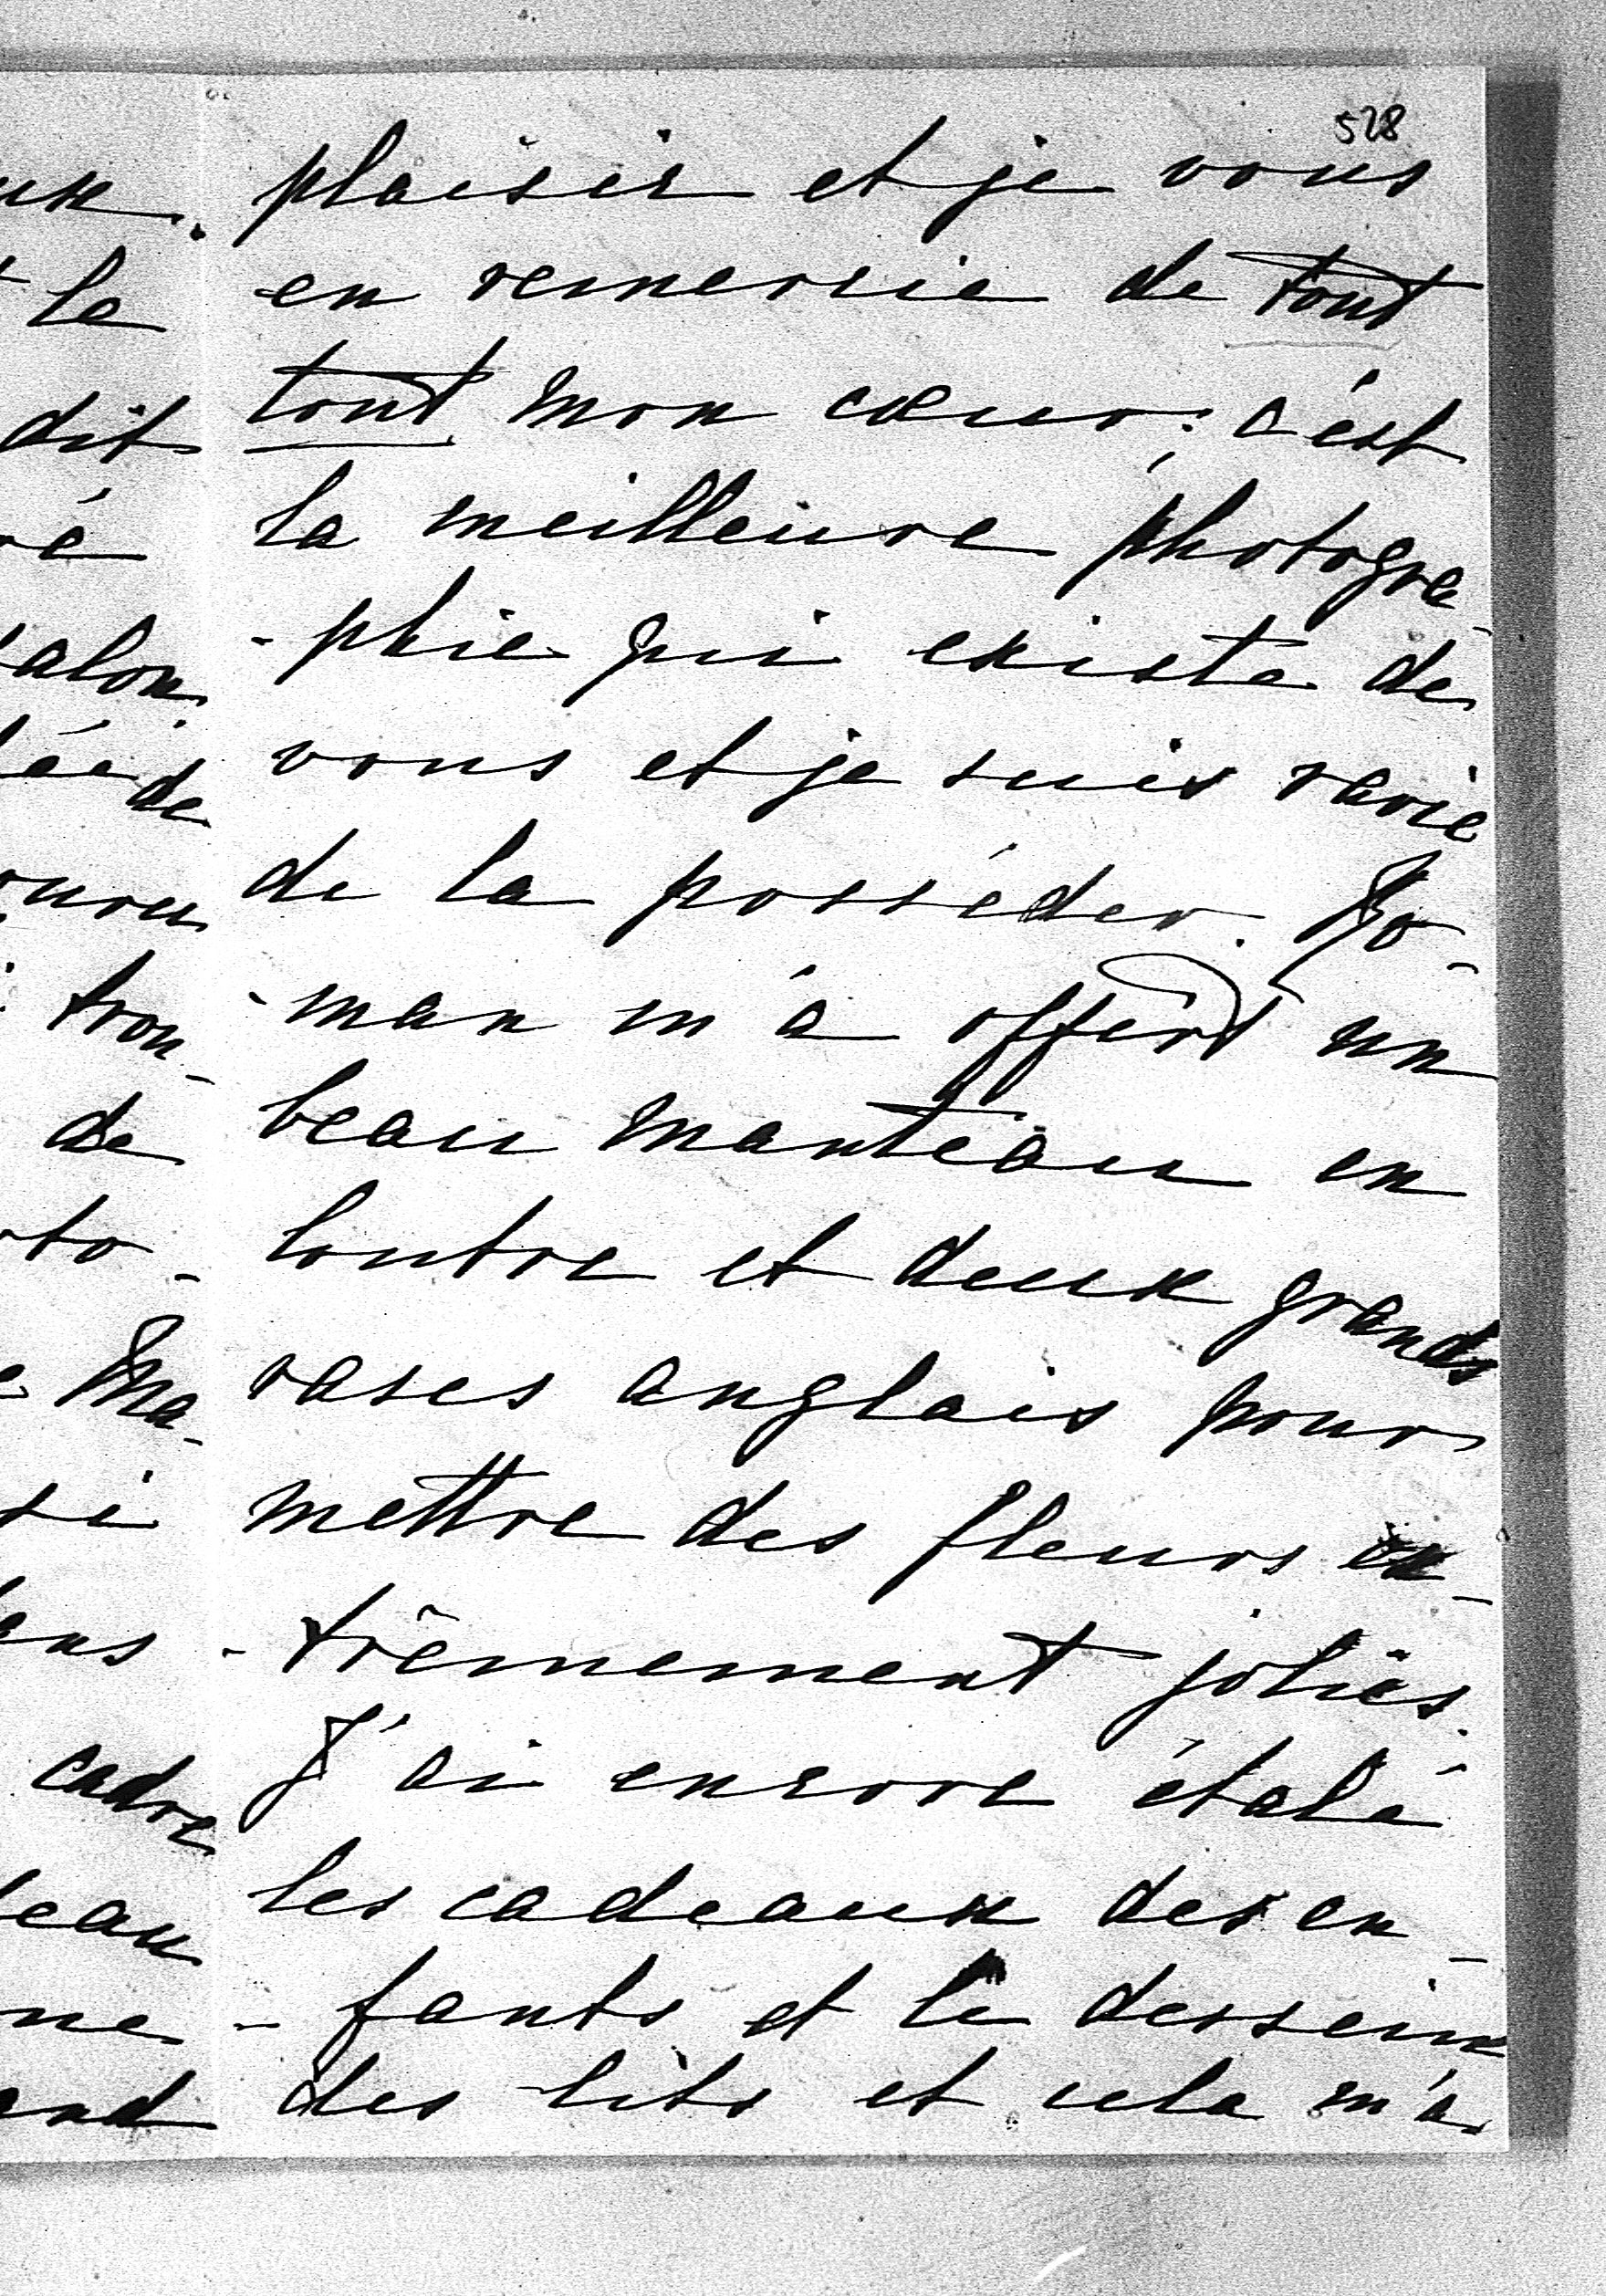 528
plaisir et je vous
en remercie de tout
tout mon cœur; c'est
la meilleure photogra-
-phie qui existe de
vous et je suis ravie
de la posséder. Ro-
-man m'a offert un
beau manteau en
loutre et deux grands
vases anglais pour
mettre des fleurs ex-
-trêmement jolies.
J'ai encore étalé
les cadeaux des en-
-fants et le dessein
des lits et cela m'a
le
dit
ré
alon
de
trou-
de
to-
Ma-
si
ens
cadre
eau
me
and